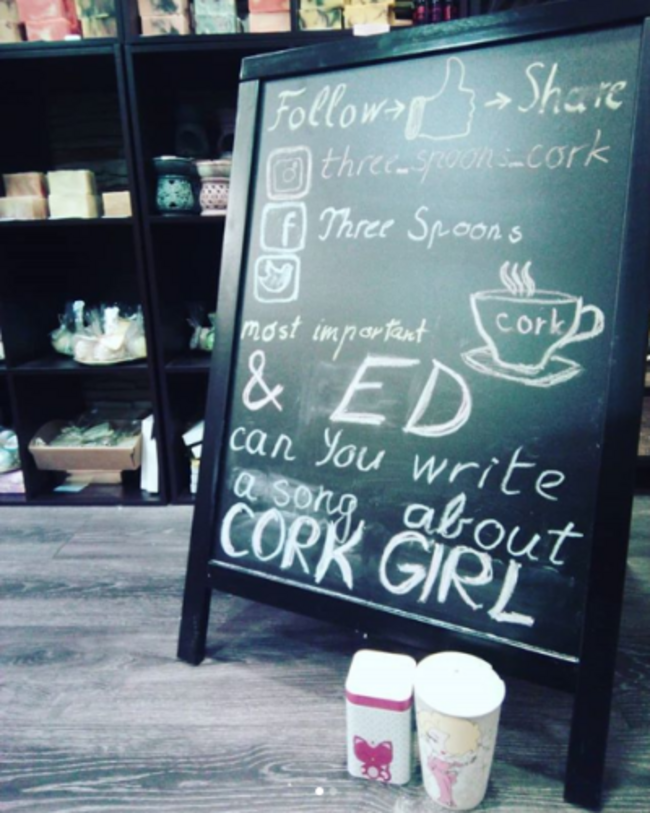 Follow → → Share
three_spoons_cork
f Three Spoons
cork
most important
& ED
can You write
a song about
CORK GIRL